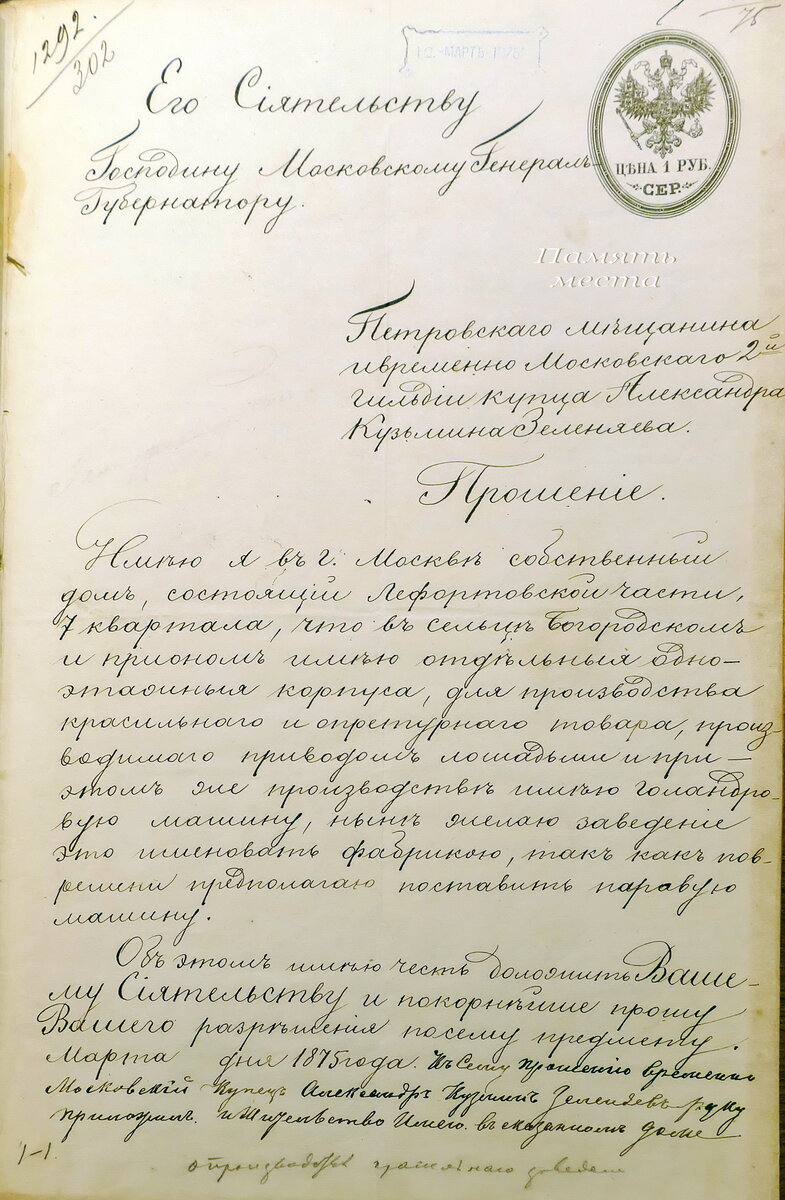 1292.
302
75
12 МАРТЪ 1875
Его Сіятельству
Господину Московскому Генералъ-
Губернатору.
ЦѢНА 1 РУБ.
СЕР.
Память
места
Петровскаго мѣщанина
ивременно Московскаго 2й
гильдіи купца Александра
Кузьмина Зеленяева.
Прошеніе.
Имѣю я въ г. Москвѣ собственный
домъ, состоящій Лефортовской части,
7 квартала, что въ сельцѣ Богородскомъ
и приономъ имѣю отдѣльныя одно-
этажныя корпуса, для производства
красильнаго и апретурнаго товара, произ-
водимаго приводомъ лошадьми и при-
этомъ же производствѣ имѣю голандро-
вую машину, нынѣ желаю заведеніе
это именовать фабрикою, такъ какъ повъ-
ремени предполагаю поставить паровую
машину.
Объ этомъ имѣю честь доложить Ваше-
му Сіятельству и покорнѣйше прошу
Вашего разрѣшенія посему предмету.
Марта дня 1875 года. Къ Сему прошенію временно
Московскій Купецъ Александръ Кузминъ Зеленяевъ руку
приложилъ. и Жительство Имею. въ сказанномъ доме
о производстве